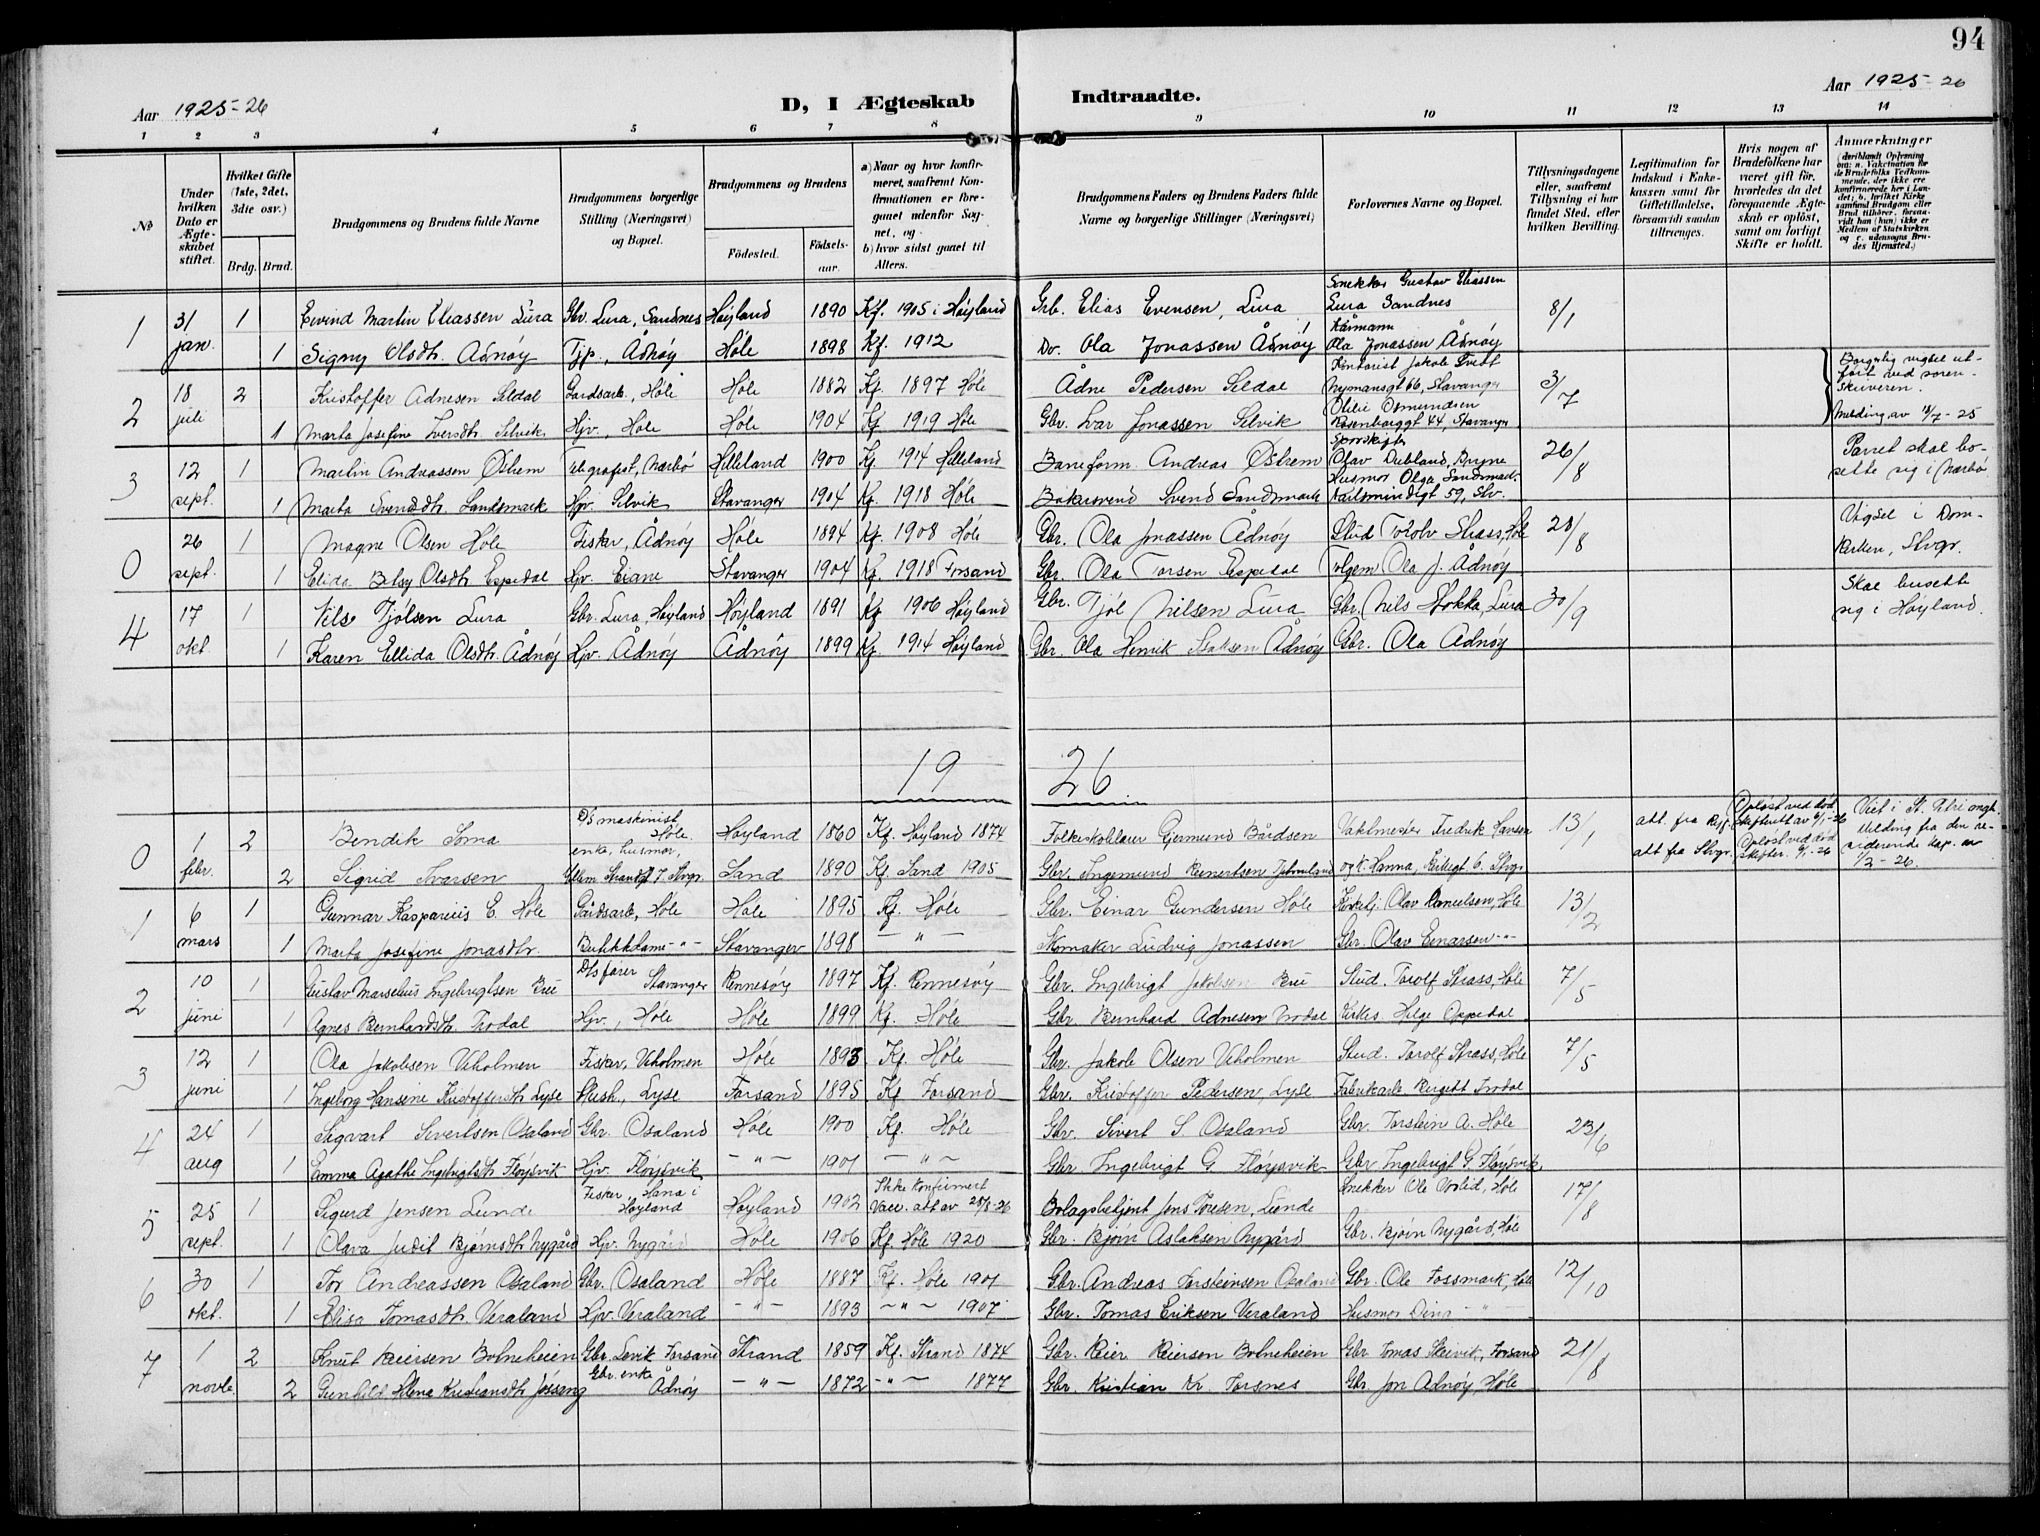 94
Aar 1925-26
D, I Ægteskab Indtraadte.
Aar 1925-26
1 2 3 4 5 6 7 8 9 10 11 12 13 14
№
Under hvilken Dato er Ægteskabet stiftet.
Hvilket Gifte (1ste, 2det, 3die osv.)
Brdg. Brud.
Brudgommens og Brudens fulde Navne
Brudgommens borgerlige Stilling (Næringsvei) og Bopæl.
Brudgommens og Brudens
Fødested. Fødselsaar.
a) Naar og hvor konfirmeret, saafremt Konfirmationen er foregaaet udenfor Sognet, og
b) hvor sidst gaaet til Alters.
Brudgommens Faders og Brudens Faders fulde Navne og borgerlige Stillinger (Næringsvei)
Forlovernes Navne og Bopæl.
Tillysningsdagene eller, saafremt Tillysning ei har fundet Sted, efter hvilken Bevilling.
Legitimation for Indskud i Enkekassen samt for Giftetilladelse, forsaavidt saadan tiltrænges.
Hvis nogen af Brudefolkene har været gift før, hvorledes da det foregaaende Ægteskab er opløst, samt om lovligt Skifte er holdt.
Anmærkninger
1 31 jan. 1 Eivind Martin Eliassen Lura Gbr. Lura, Sandnes Høyland 1890 Kf. 1905 i Høyland Grb. Elias Evensen, Lura Snekker Gustav Eliassen Lura Sandnes 8/1
1 Signy Olsdtr. Ådnøy Tjp., Ådnøy Høle 1898 Kf. 1912 Do. Ola Jonassen Ådnøy Kårmann Ola Jonassen Ådnøy
2 18 juli 2 Kristoffer Adnesen Seldal Gardsarb., Høle Høle 1882 Kf. 1897 Høle Ådne Pedersen Seldal Kontorist Jakob Tvedt Nymansgt 66, Stavanger 3/7 Borgerlig vigsel utført ved sorenskriveren.
1 Marta Josefine Iversdtr. Selvik Hjv., Høle Høle 1904 Kf. 1919 Høle Gbr. Ivar Jonassen Selvik Olilie Osmundsen Rosenborggt 44, Stavanger Melding av 18/7-25
3 12 sept. 1 Martin Andreassen Østrem Telegrafist, Nærbø Helleland 1900 Kf. 1914 Helleland Baneform. Andreas Østrem Sporskifter Olav Dubland, Bryne 26/8 Parret skal bosette sig i Nærbø
1 Marta Svendsdtr. Sandsmark Hjv. Selvik Stavanger 1904 Kf. 1918 Høle Bakersvend Svend Sandsmark Husmor Olga Sandsmark. Karlsmindegt 59, Stv.
0 26 sept. 1 Magne Olsen Høle Fisker, Ådnøy Høle 1894 Kf. 1908 Høle Gbr. Ola Jonassen Ådnøy Stud Torolv Strass, Høle 28/8 Vigsel i Domkirken, Stvgr.
1 Elida Betsy Olsdtr. Espedal Hjv. Eiane Stavanger 1904 Kf. 1918 Forsand Gbr. Ola Torsen Espedal Ola J. Ådnøy
4 17 okt. 1 Nils Tjølsen Lura Gbr. Lura, Høyland Høyland 1891 Kf 1906 Høyland Gbr. Tjøl Nilsen Lura Gbr. Nils Stokka, Lura 30/9 Skal busette sig i Høyland.
1 Karen Ellida Olsdtr. Ådnøy Hjv. Ådnøy Ådnøy 1899 Kf. 1914 Høyland Gbr. Ola Henrik Isaksen Ådnøy Gbr. Ola Ådnøy
19 26
0 1 febr. 2 Bendik Soma D/S maskinist Høle Høyland 1860 Kf. Høyland 1874 Folkeskolelærer Gjermund Bårdsen Vaktmester Fredrik Hansen 13/1 att. fra Opløst ved død skifteatt av 6/1-26 Viet i St. Petri
2 Sigrid Ivarsen enke, husmor, Stvgr. Sand 1890 Kf. Sand 1905 Gbr. Ingemund Reinertsen og K. Hanna, Stvgr att fra Stvgr. Opløst ved død Melding fra den 1/2-26.
1 6 mars 1 Gunnar Kasparius E. Høle Gårdsarb., Høle Høle 1895 Kf. Høle Gbr. Einar Gundersen Høle Kirketj. Olav Danielsen, Høle 13/2
1 Marta Josefine Jonasdtr. Butikkdame -"- Stavanger 1898 -"- Skomaker Ludvig Jonassen Gbr. Olav Einarsen -"-
2 10 juni 1 Gustav Marselius Ingebrigtsen Bru D/S fører Stavanger Rennesøy 1897 Kf. Rennesøy Gbr. Ingebrigt Jakobsen Bru Stud. Torolf Strass, Høle 7/5
1 Agnes Bernhardsdtr. Trodal Hjv., Høle Høle 1899 Kf. Høle Gbr Bernhard Adnesen Trodal Kirkes. Helge Oppedal
3 12 juni 1 Ola Jakobsen Uleholmen Fisker, Uleholmen Høle 1893 Kf. Høle Gbr. Jakob Olsen Uleholmen Stud. Torolf Strass, Høle 7/5
1 Ingeborg Hansene Kristoffersdtr Lyse Hush., Lyse Forsand 1895 Kf. Forsand Gbr. Kristoffer Pedersen, Lyse Fabrikarb. Trodal
4 24 aug 1 Sigvart Sivertsen Osaland Gbr. Osaland Høle 1900 Kf. Høle Gbr. Sivert S Osaland Gbr. Torstein A. Høle 23/6
1 Emma Agathe Ingebrigtsdtr Fløysvik Hjv. Fløysvik -"- 1901 -"- Gbr. Ingebrigt G. Fløysvik Gbr. Ingebrigt G. Fløysvik
5 25 sept. 1 Sigurd Jensen Lunde Fisker, Hana i Høyland Høyland 1902 Ikke konfirmert Vacc. att av 28/8-26 Bolagsbetjent Jens Toresen, Lunde Snekker Ole Høle 17/8
1 Olava Judit Bjørnsdtr Nygård Hjv. Nygård Høle 1906 Kf. Høle 1920 Gbr. Bjørn Aslaksen Nygård Gbr. Bjørn Nygård, Høle
6 30 okt. 1 Tor Andreassen Osaland Gbr. Osaland Høle 1887 Kf. Høle 1901 Gbr. Andreas Torsteinsen Osaland Gbr. Ole Fossmark, Høle 12/10
1 Elisa Tomasdtr. Veraland Hjv. Veraland -"- 1893 -"- 1907 Gbr. Tomas Eriksen Veraland Husmor Dina -"-
7 1 novbr. 2 Knut Reiersen Bolneheien Gbr. Levik Forsand Strand 1859 Kf. Strand 1874 Gbr. Reier Reiersen Bolneheien Gbr Tomas Forsand 21/8
2 Gunhild Helena Kristiansdtr Gbr. enke Ådnøy -"- 1872 -"- 1877 Gbr. Kristian Kr Forsnes Gbr Jon Ådnøy, Høle